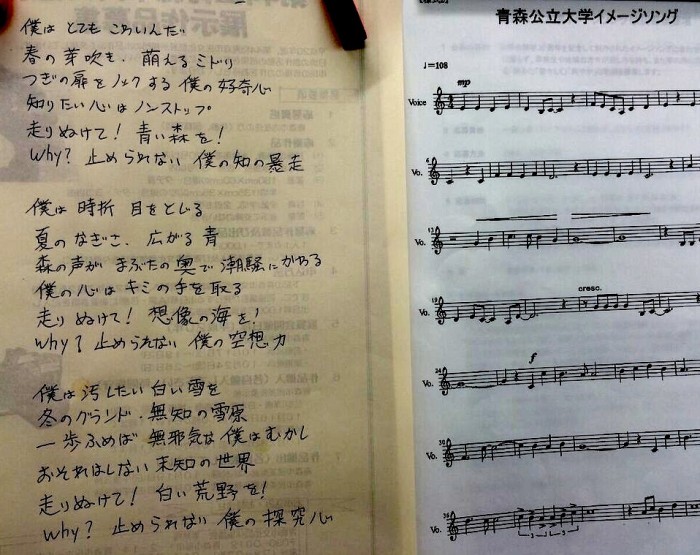 僕は とても こわいんだ
春の芽吹き、萌えるミドリ
つぎの扉をノックする 僕の好奇心
知りたい心はノンストップ
走りぬけて! 青い森を!
Why? 止められない 僕の知の暴走
僕は 時折 目をとじる
夏のなぎさ、広がる青
森の声が まぶたの奥で 潮騒にかわる
僕の心は キミの手を取る
走りぬけて! 想像の海を!
Why? 止められない 僕の空想力
僕は汚したい 白い雪を
冬のグランド・無知の雪原
一歩ふめば 無邪気な僕はむかし
おそれはしない 未知の世界
走りぬけて! 白い荒野を!
Why? 止められない 僕の探究心
青森公立大学イメージソング
♩=108
mp
Voice
Vo.
Vo.
cresc.
Vo.
f
Vo.
Vo.
Vo.
3 3